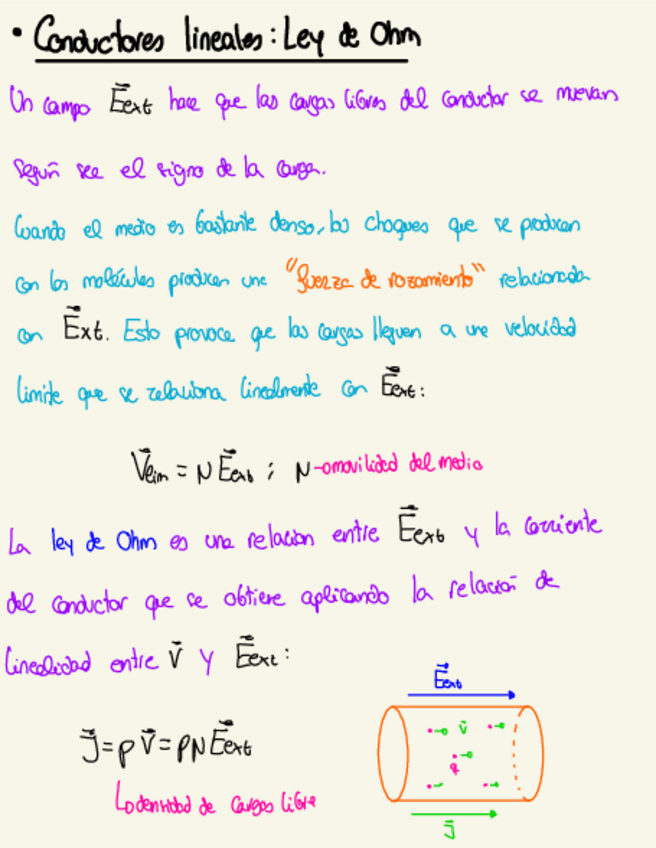 • Conductores lineales: Ley de Ohm
Un campo E⃗ext hace que las cargas libres del conductor se muevan
según sea el signo de la carga.
Cuando el medio es bastante denso, los choques que se producen
con las moléculas producen una "fuerza de rozamiento" relacionada
con E⃗xt. Esto provoca que las cargas lleguen a una velocidad
limite que se relaciona linealmente con E⃗ext:
V⃗lim = μ E⃗ext ; μ → movilidad del medio
La ley de Ohm es una relacion entre E⃗ext y la corriente
del conductor que se obtiene aplicando la relación de
linealidad entre v⃗ y E⃗ext:
E⃗ext
J⃗ = ρ v⃗ = ρ μ E⃗ext
v⃗
q
↳ densidad de cargas libre
J⃗